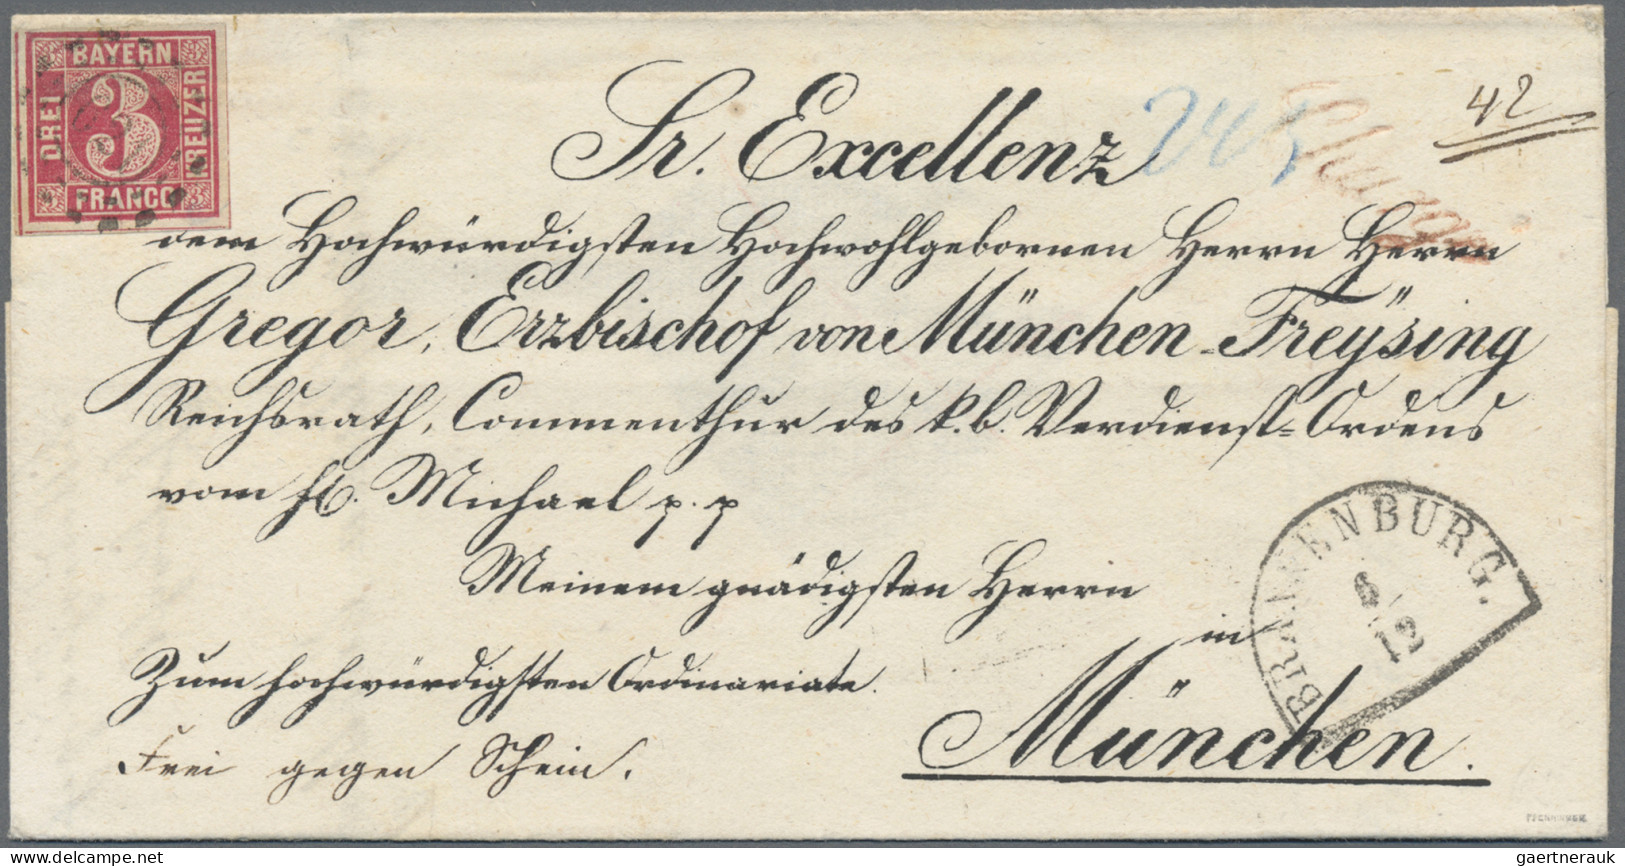 BAYERN
DREI 3 KREUZER
FRANCO
42
Sr. Excellenz
dem Hochwürdigsten Hochwohlgebornen Herrn Herrn
Gregor, Erzbischof von München-Freÿsing
Reichsrath, Commenthur des k. b. Verdienst-Ordens
vom hl. Michael p. p
Meinem gnädigsten Herrn
in
München.
Zum hochwürdigsten Ordinariate.
Frei gegen Schein.
BRANNENBURG.
12
PFENNINGER
gaertnerauk
delcampe.net